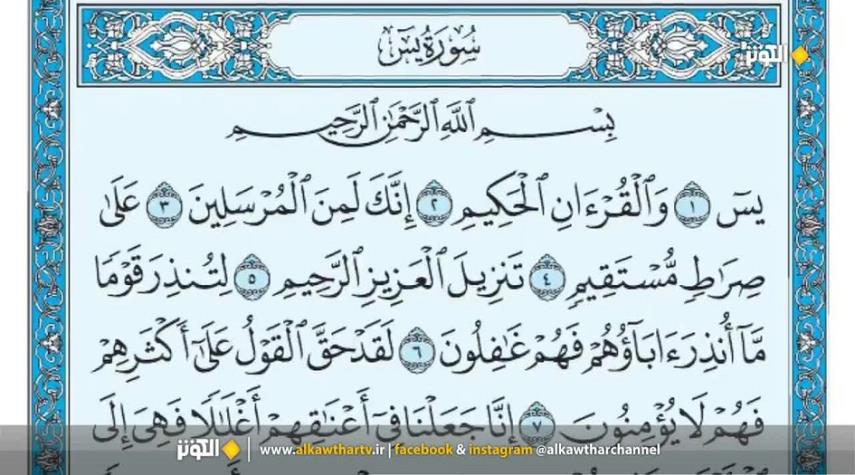 سُورَةُ يسٓ
الكوثر
بِسْمِ ٱللَّهِ ٱلرَّحْمَٰنِ ٱلرَّحِيمِ
يسٓ ١ وَٱلْقُرْءَانِ ٱلْحَكِيمِ ٢ إِنَّكَ لَمِنَ ٱلْمُرْسَلِينَ ٣ عَلَىٰ
صِرَٰطٍ مُّسْتَقِيمٍ ٤ تَنزِيلَ ٱلْعَزِيزِ ٱلرَّحِيمِ ٥ لِتُنذِرَ قَوْمًا
مَّآ أُنذِرَ ءَابَآؤُهُمْ فَهُمْ غَٰفِلُونَ ٦ لَقَدْ حَقَّ ٱلْقَوْلُ عَلَىٰٓ أَكْثَرِهِمْ
فَهُمْ لَا يُؤْمِنُونَ ٧ إِنَّا جَعَلْنَا فِىٓ أَعْنَٰقِهِمْ أَغْلَٰلًا فَهِىَ إِلَى
الكوثر www.alkawthartv.ir | facebook & instagram @alkawtharchannel